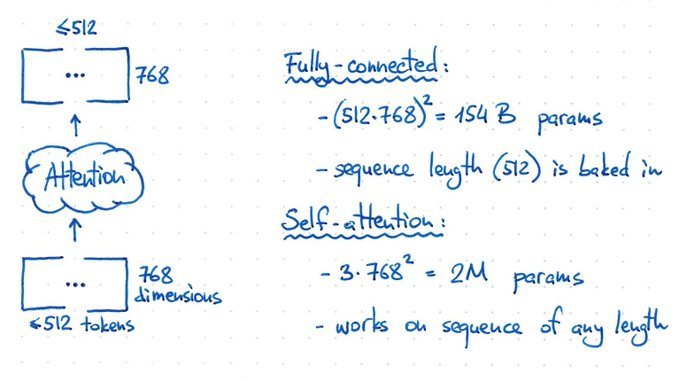 ≤512
...
768
Attention
...
768
dimensions
≤512 tokens
Fully-connected:
- (512·768)² = 154 B params
- sequence length (512) is baked in
Self-attention:
- 3·768² = 2M params
- works on sequence of any length